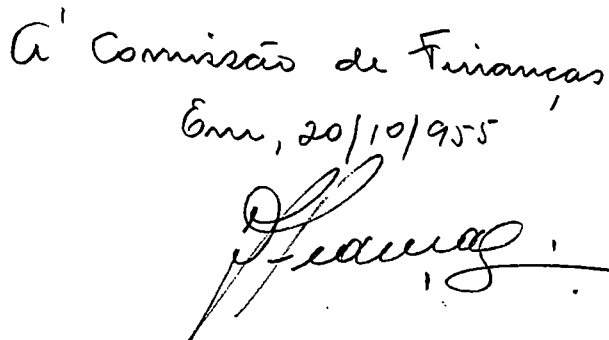 A' Comissão de Finanças
Em, 20/10/955